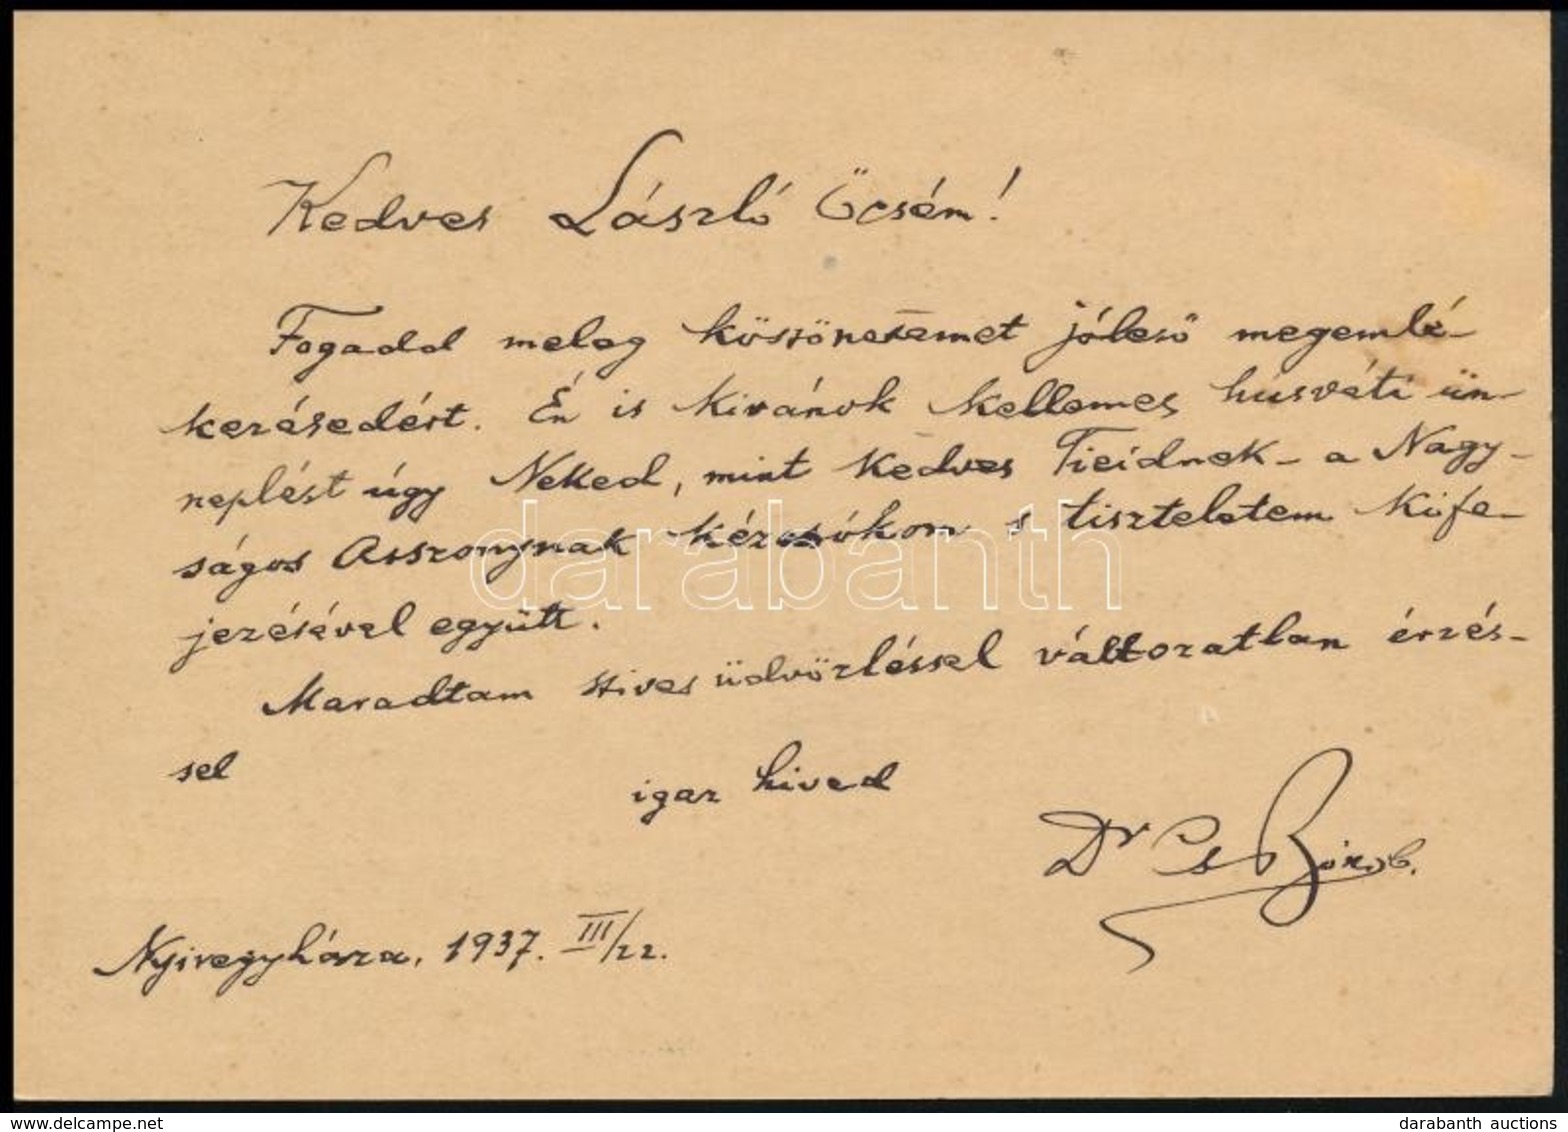 Kedves László Öcsém!
Fogadd meleg köszönetemet jóleső megemlé-
kezésedért. Én is kivánok kellemes húsvéti ün-
neplést úgy Neked, mint kedves Tieidnek - a Nagy-
ságos Asszonynak kézcsókom s tiszteletem kife-
jezésével együtt.
Maradtam szives üdvözléssel változatlan érzés-
sel
igaz hived
Dr Cs
Nyiregyháza, 1937. III/22.
darabanth
darabanth auctions